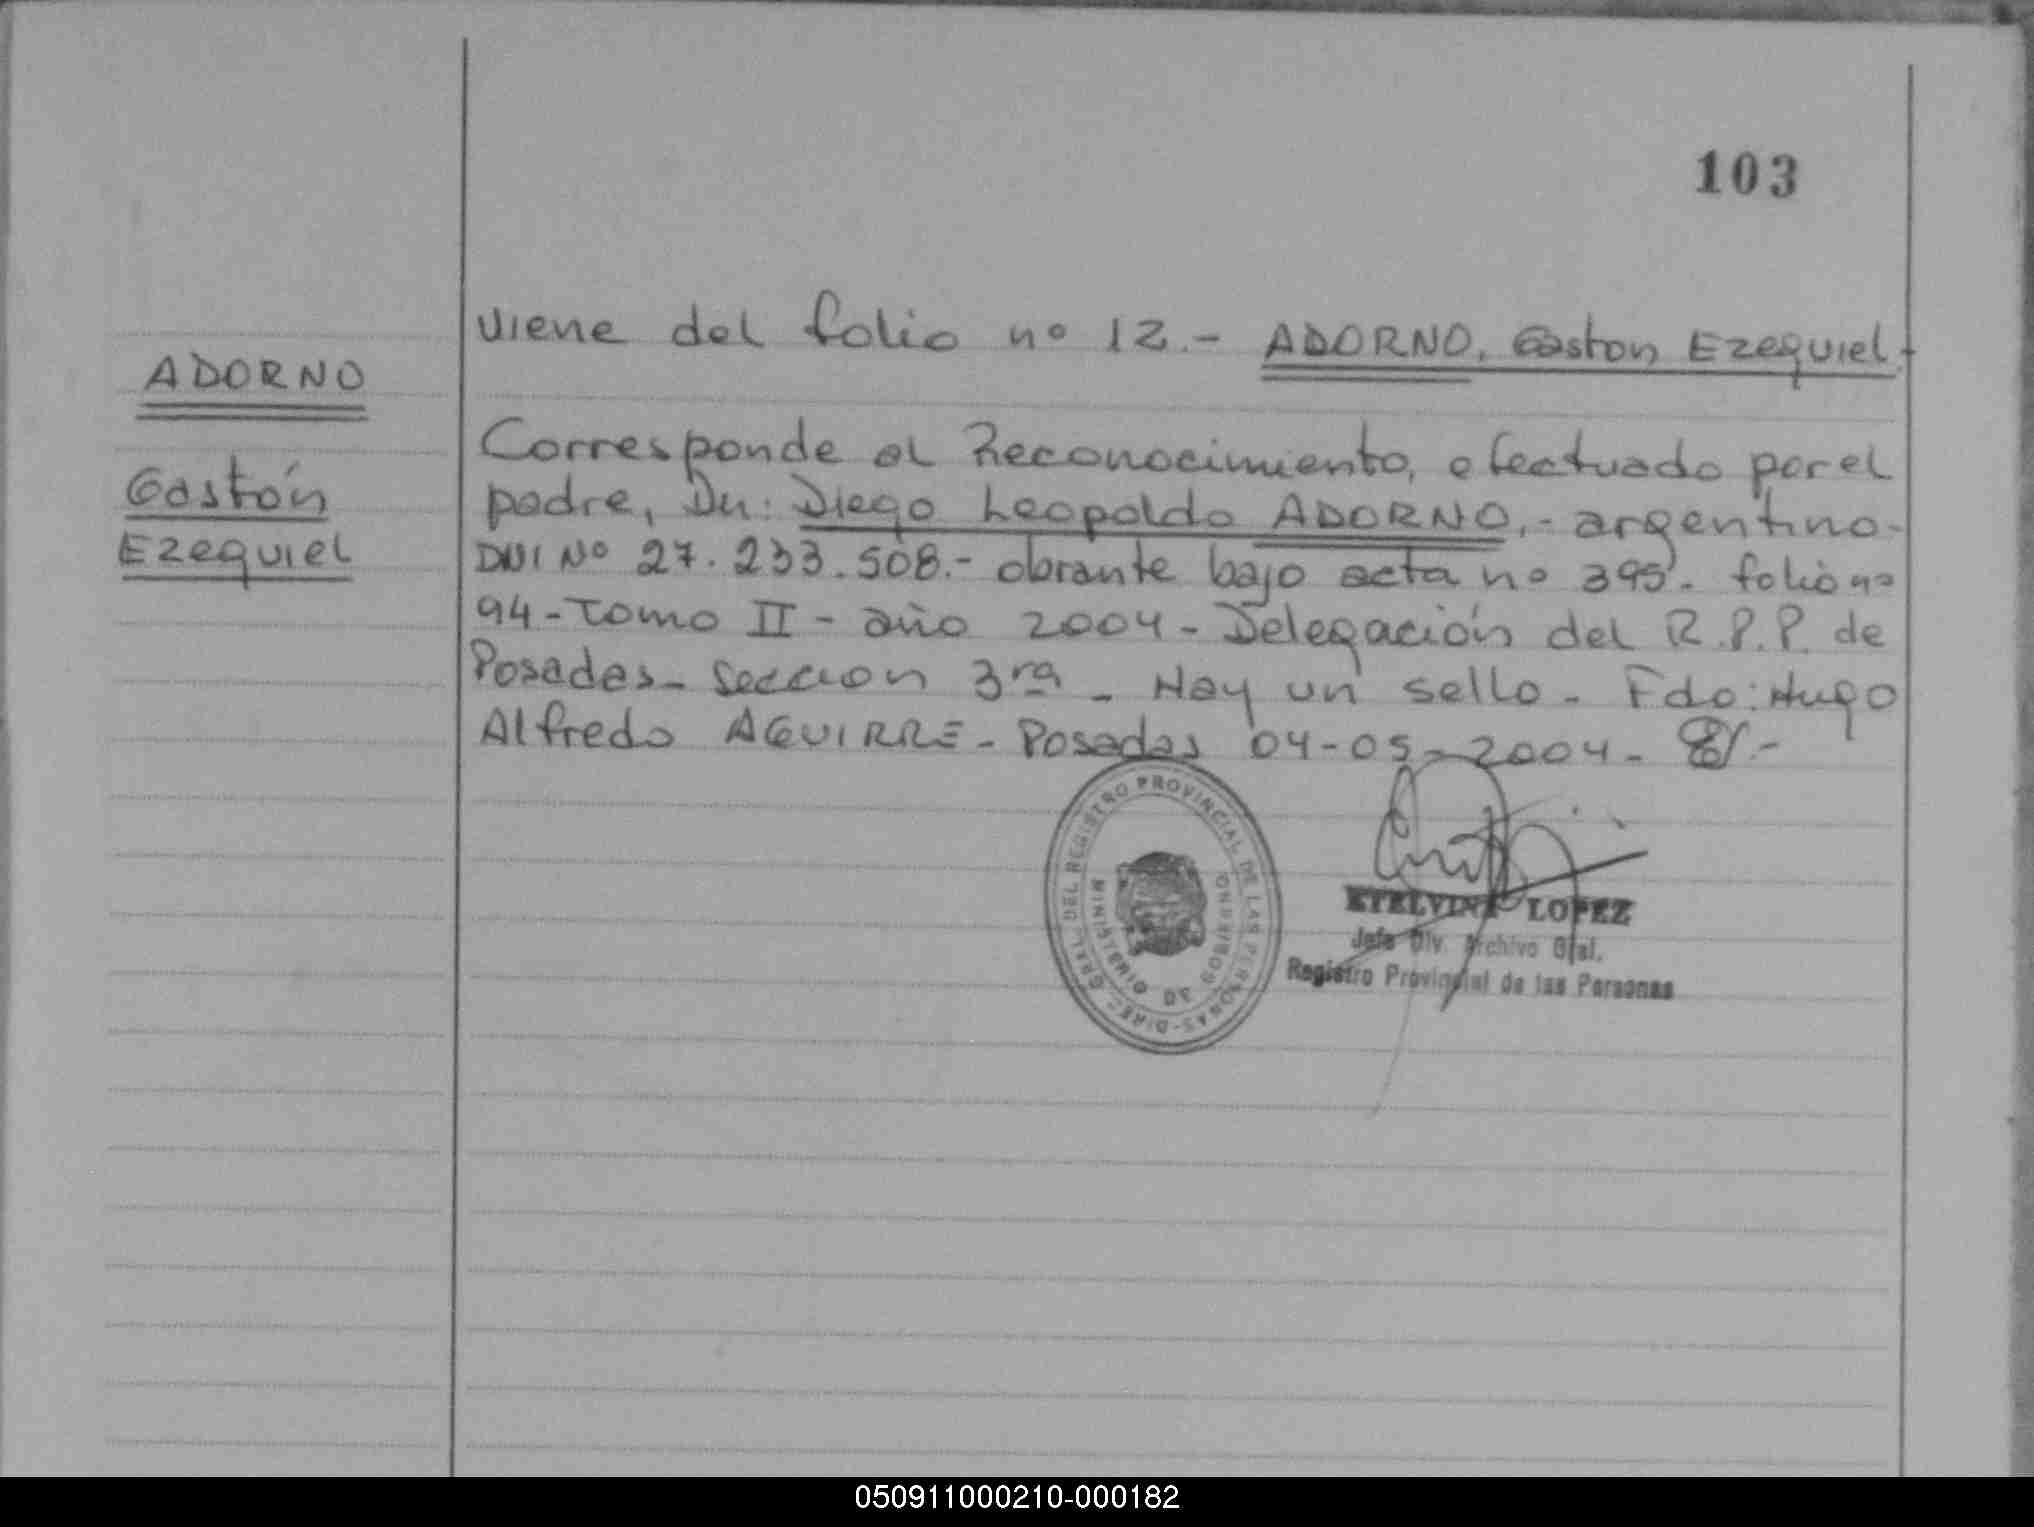 103
ADORNO
Gastón
Ezequiel
viene del folio nº 12.- ADORNO, Gaston Ezequiel.-
Corresponde al Reconocimiento, efectuado por el
padre, Dn: Diego Leopoldo ADORNO.- argentino-
DNI Nº 27.233.508.- obrante bajo acta nº 395- folio nº
94-Tomo II - año 2004- Delegación del R.P.P. de
Posadas- Seccion 3ra - Hay un sello- Fdo: Hugo
Alfredo AGUIRRE- Posadas 04-05-2004-
DIREC. GRAL. DEL REGISTRO PROVINCIAL DE LAS PERSONAS-
MINISTERIO DE GOBIERNO
ETELVINA LOPEZ
Jefe Div. Archivo Gral.
Registro Provincial de las Personas
050911000210-000182